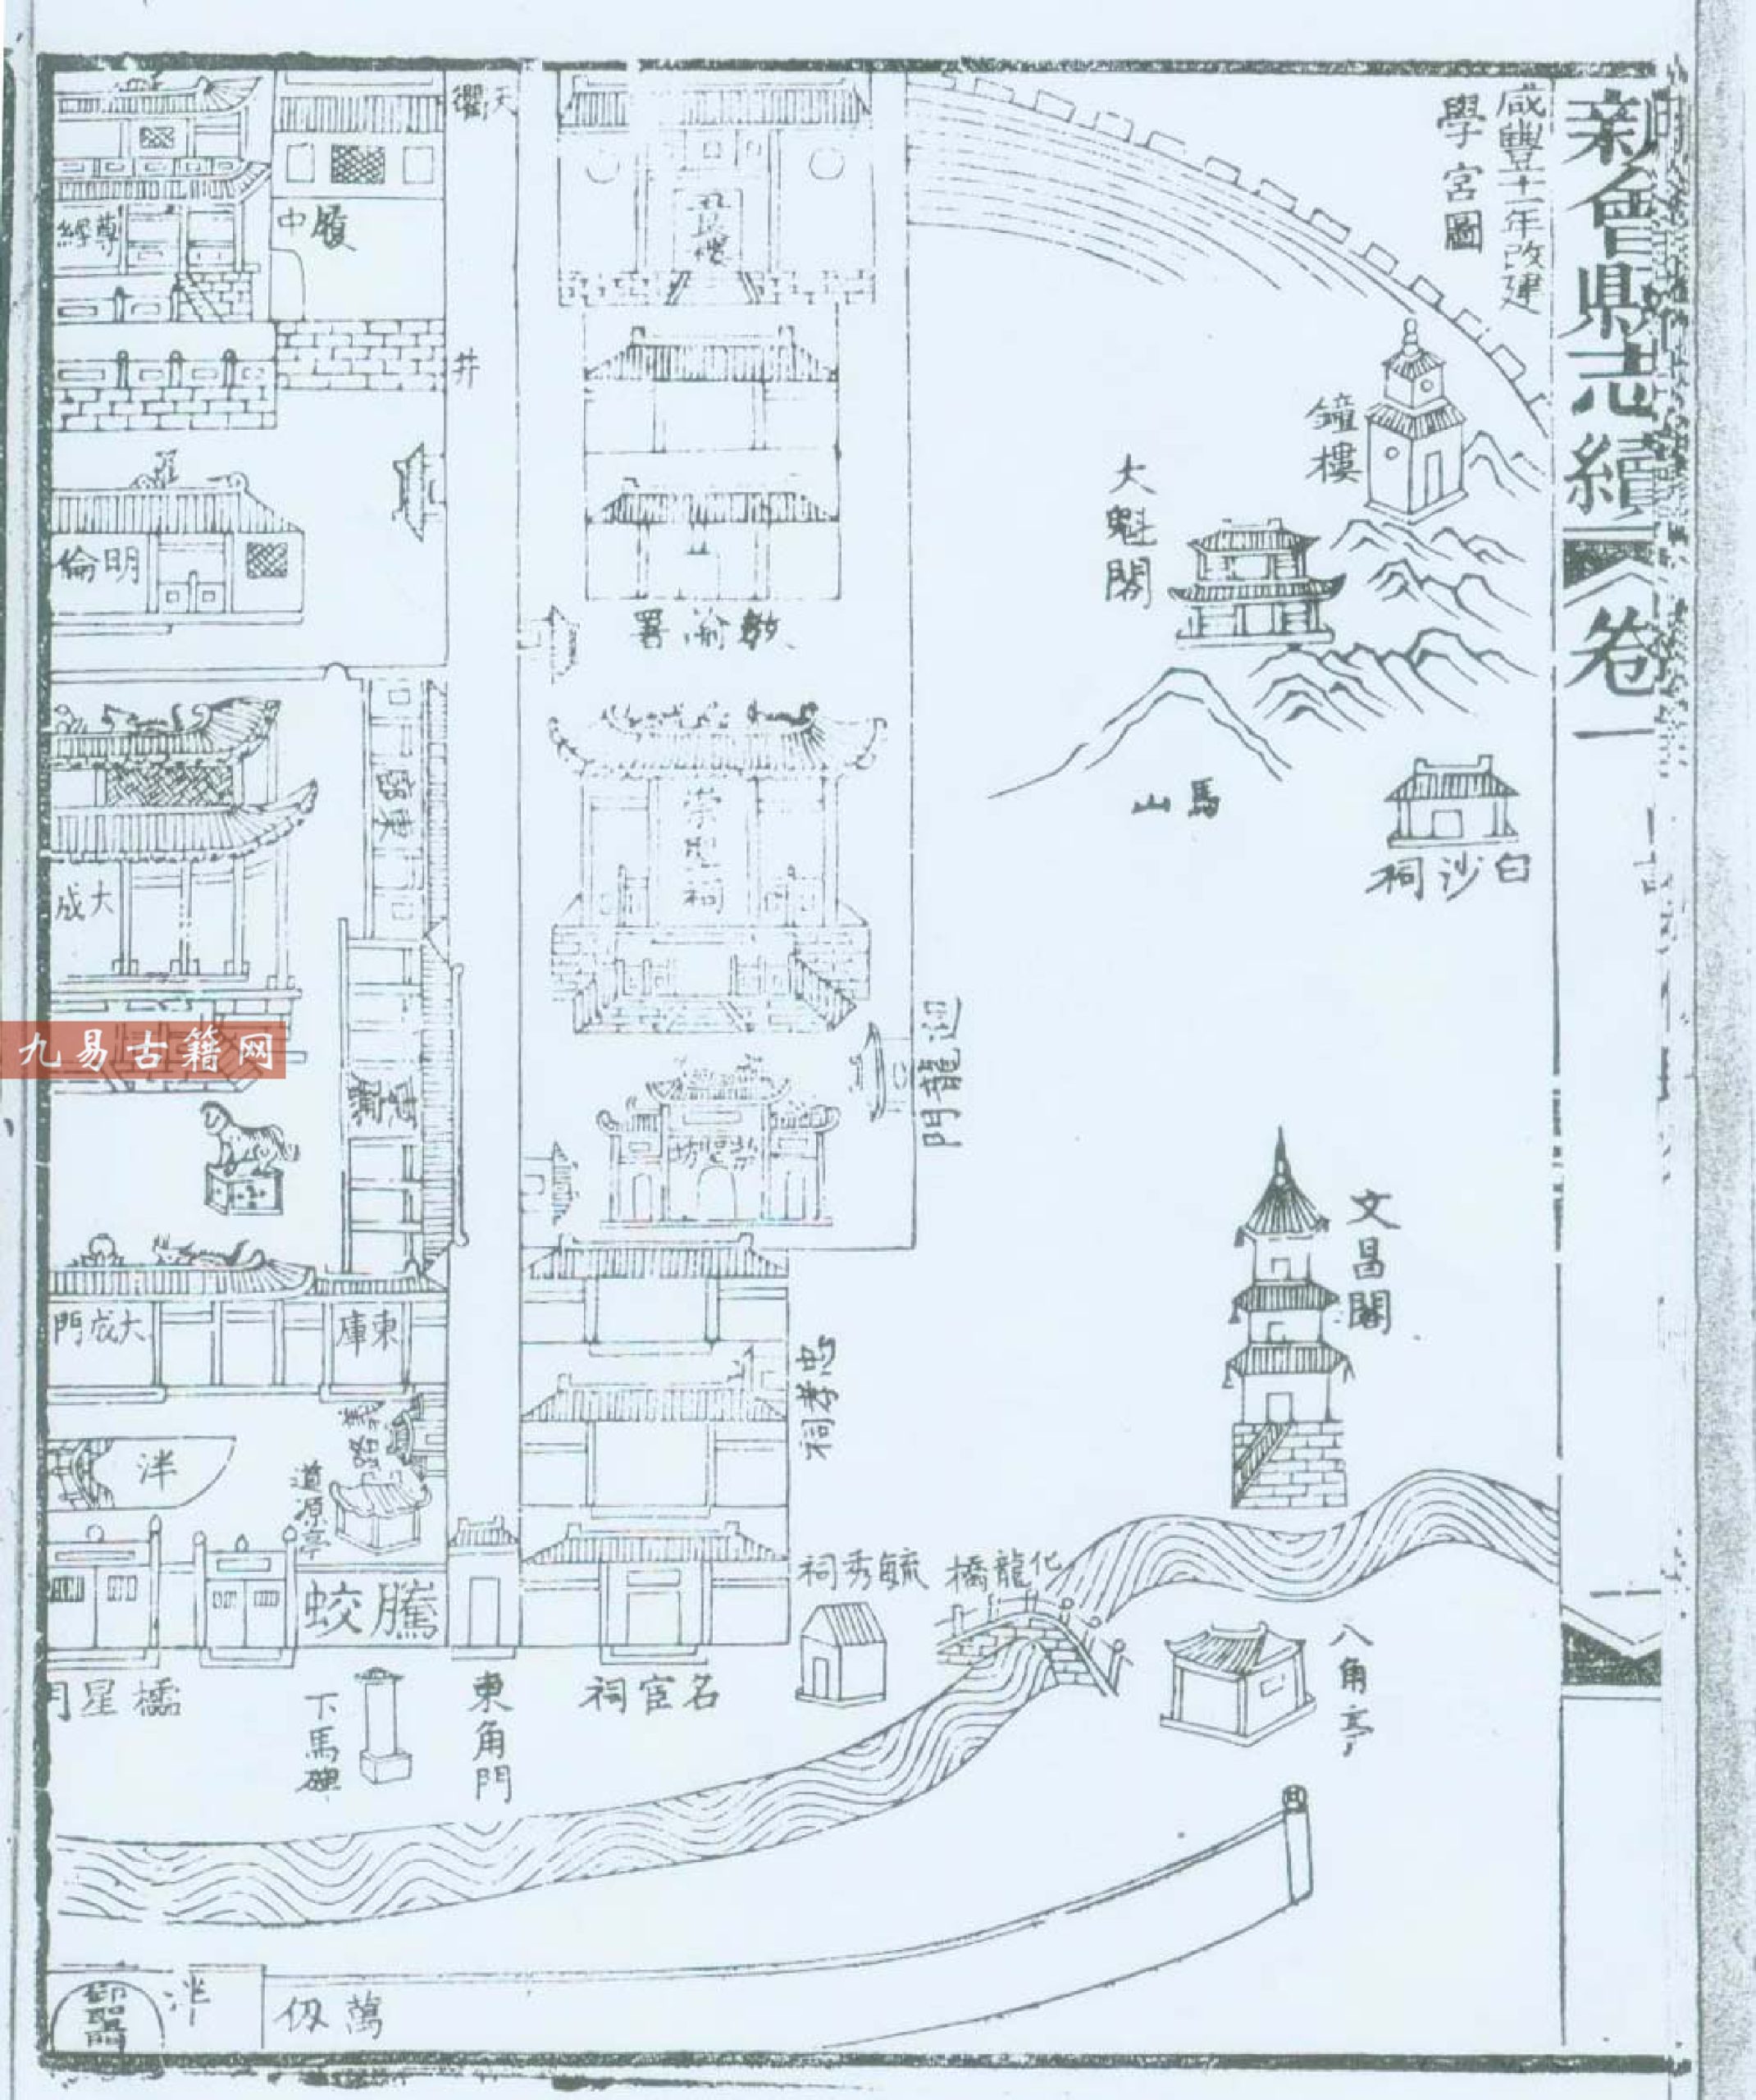 新會縣志續
卷一
咸豐十一年改建
學宮圖
鐘樓
大魁閣
馬山
白沙祠
文昌閣
八角亭
化龍橋
毓秀祠
迎龍門
教諭署
崇聖祠
忠孝祠
名宦祠
東角門
天衢
井
履中
尊經
明倫
大成
東廡
大成門
東庫
義路
道源亭
泮
騰蛟
下馬碑
櫺星門
萬仭
泮
九易古籍网